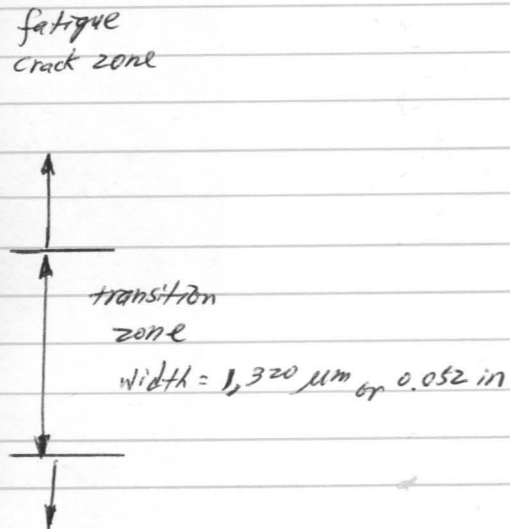 fatigue
crack zone
transition
zone
width = 1,320 µm or 0.052 in